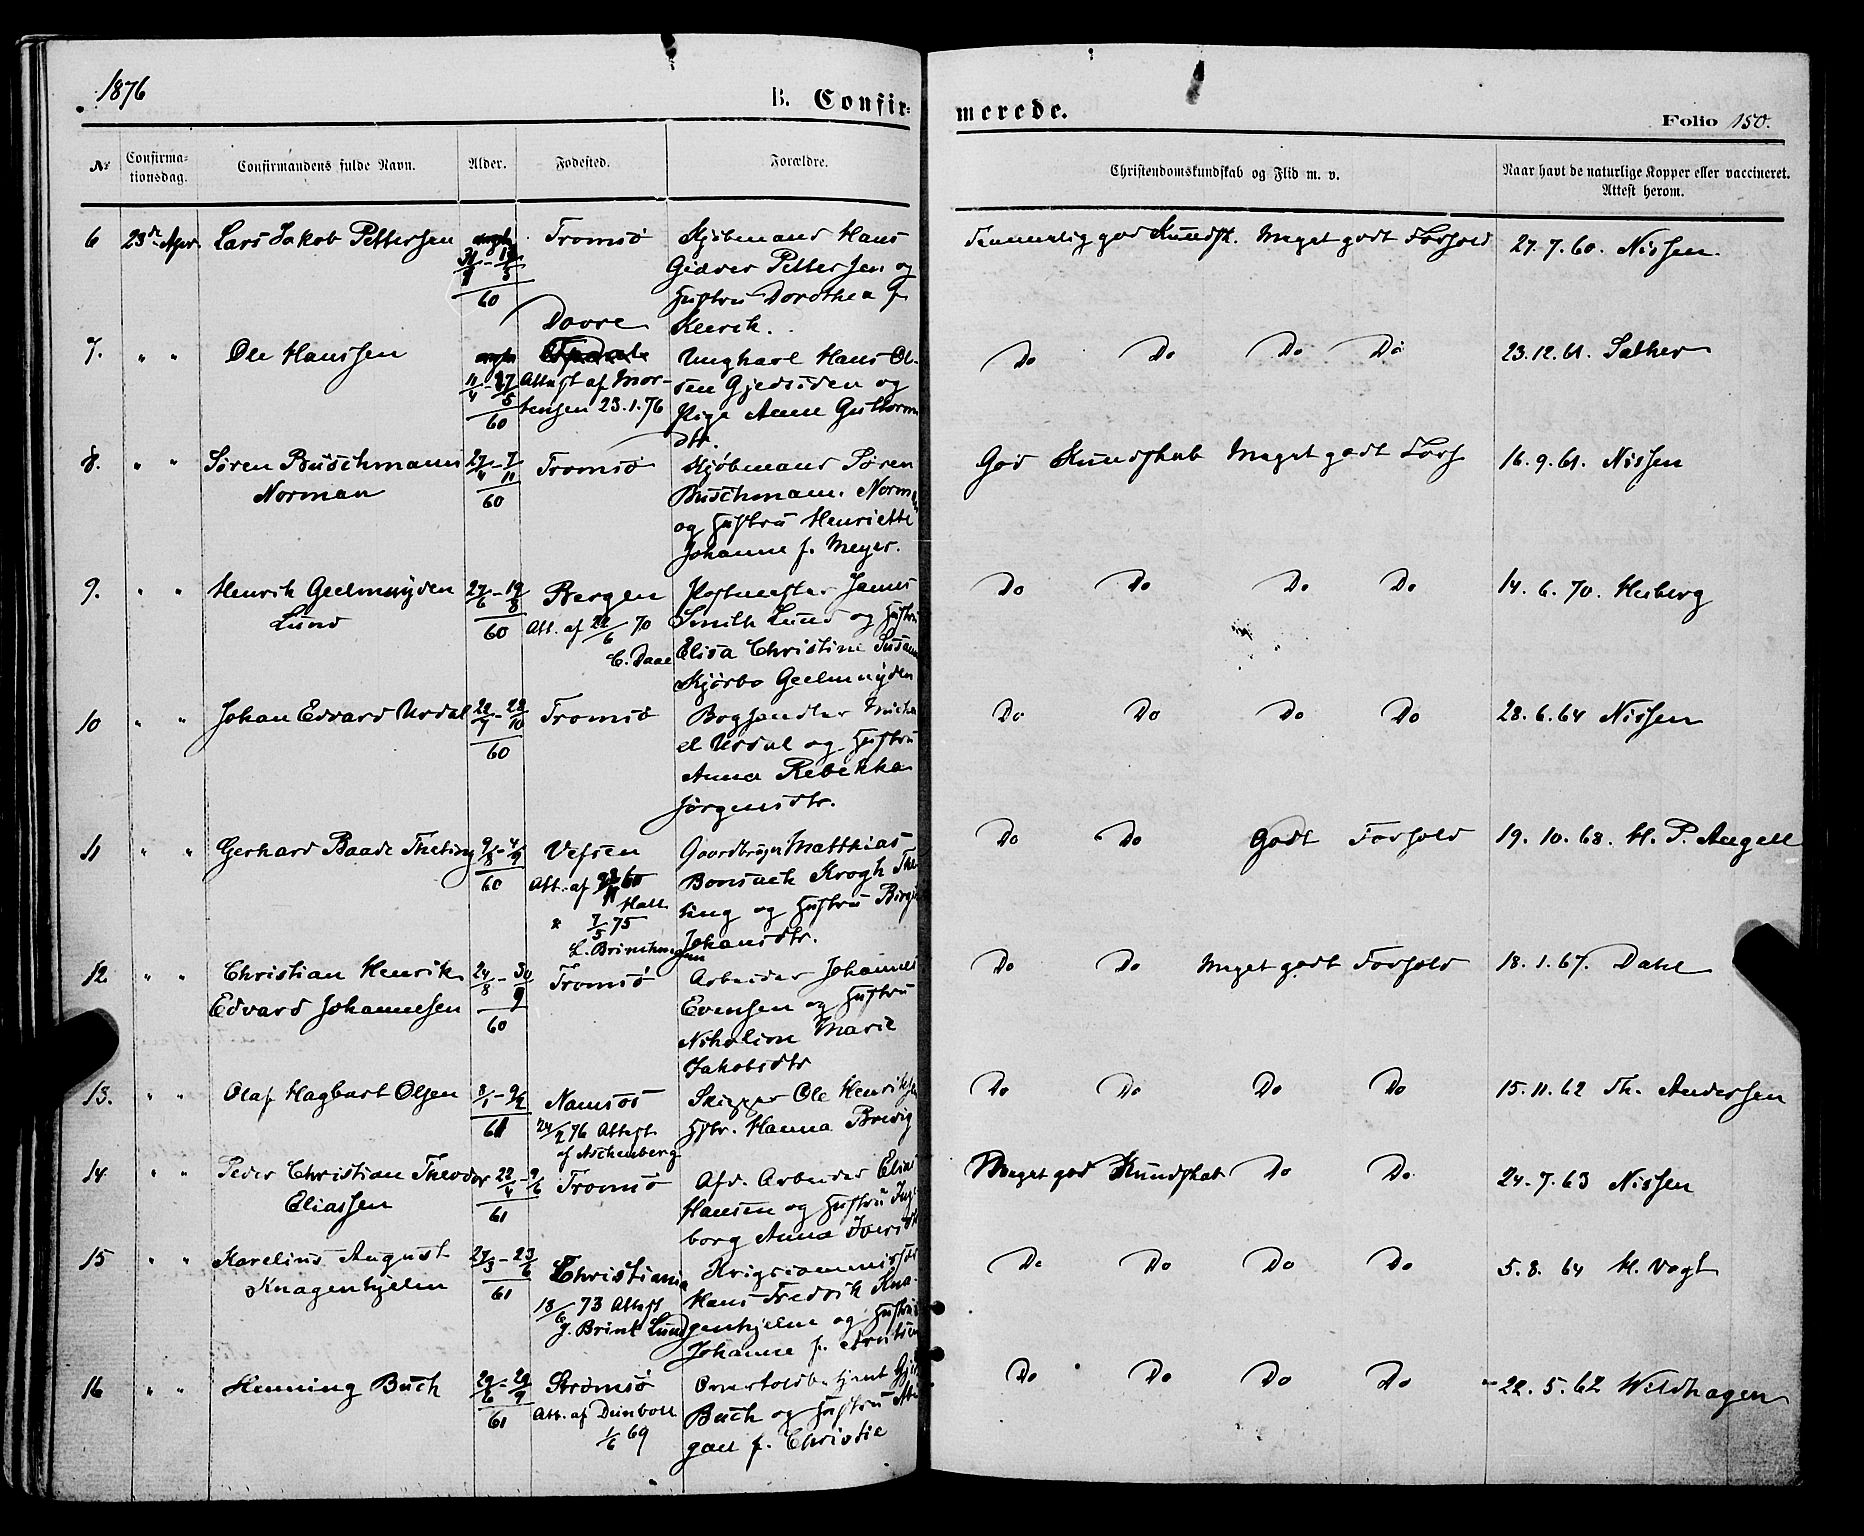 1876
B. Confir-
merede.
Folio 150.
Nr
Confirma-
tionsdag.
Confirmandens fulde Navn.
Alder.
Fødested.
Forældre.
Christendomskundskab og Flid m. v.
Naar havt de naturlige Kopper eller vaccineret.
Attest herom.
6 23de Apr. Lars Jakob Pettersen Tromsø Kjøbmand Hans
Gidver Pettersen og
60 Hustru Dorothea f.
Klerck.
Temmelig god Kundsk. Meget godt Forhold 27.7.60. Nissen.
7. " " Ole Hanssen Dovre Ungkarl Hans Ol-
11/4 - 27/5 60 Attest af Mor- sen Gjedsiden og
tensen 23.1.76 Pige Anne Guttorms
dtr.
Do Do Do Do 23.12.61. Sæther
8. " " Søren Buschmann 27/4 - 7/11 Tromsø Kjøbmand Søren
Norman 60 Buschmann Norman
og Hustru Henriette
Johanne f. Meyer.
God Kundskab Meget godt Forh 16.9.61. Nissen
9. " " Henrik Geelmuyden 27/6 - 19/8 Bergen Postmester James
Lund 60 Att. af 22/6 70 Smith Lund og Hustru
C. Daae Elisa Christine Susanne
Kjørbo Geelmuyden
Do Do Do Do 14.6.70. Heiberg
10 " " Johan Edvard Urdal 22/7 - 28/10 Tromsø Boghandler Micha
60 el Urdal og Hustru
Anna Rebekka
Jørgensdtr.
Do Do Do Do 28.6.64 Nissen
11 " " Gerhard Baade Theting 9/8 - 4/9 Vefsen Gaardbruger Matthias
60 Att. af Bonsach Krogh The
Hall ting og Hustru Birgit
" 7/5 75 Johansdtr.
L. Brinchmann
Do Do Godt Forhold 19.10.68. H. P. Angell
12. " " Christian Henrik 24/8 - 30/9 Tromsø Arbeider Johannes
Edvard Johannesen 60 Evensen og Hustru
Nikoline Marie
Jakobsdtr
Do Do Meget godt Forhold 18.1.67. Dahl
13. " " Olaf Hagbart Olsen 8/1 - 9/2 Namsos Skipper Ole Henriksen
61 24/2 76 Attest Hstr. Hanna Brevig
af Aschenberg
Do Do Do Do 15.11.62 Th. Anderssen
14 " " Peder Christian Theodor 22/4 - 9/6 Tromsø Afd. Arbeider Elias
Eliassen 61 Hansen og Hustru Inge
borg Anna Iversdtr
Meget god Kundskab Do Do 24.7.63 Nissen
15 " " Karelius August 27/3 - 23/6 Christiania Krigscommissær
Knagenhjelm 61 18/6 73 Attest Hans Fredrik Kna-
J. Brink Lund genhjelm og Hustru
Johanne f. Arntsen
Do Do Do Do 5.8.64 H. Vogt
16 " " Henning Buch 29/6 - 29/9 Strømsø Overtoldbetjent
61 Att. af Dunboll Buch og Hustru
1/6 69 gall f. Christie
Do Do Do Do 22.5.62 Wildhagen